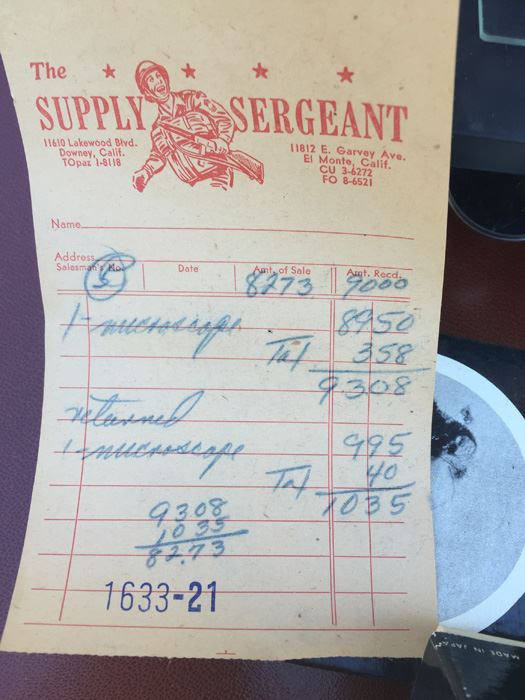 The
SUPPLY SERGEANT
11610 Lakewood Blvd.
Downey, Calif.
TOpaz 1-8118
11812 E. Garvey Ave.
El Monte, Calif.
CU 3-6272
FO 8-6521
Name
Address
Salesman's No. Date Amt. of Sale Amt. Recd.
5 8273 9000
1-microscope 8950
Tax 358
9308
returned
1-microscope 995
Tax 40
1035
9308
1035
82.73
1633-21
MADE IN JAPAN